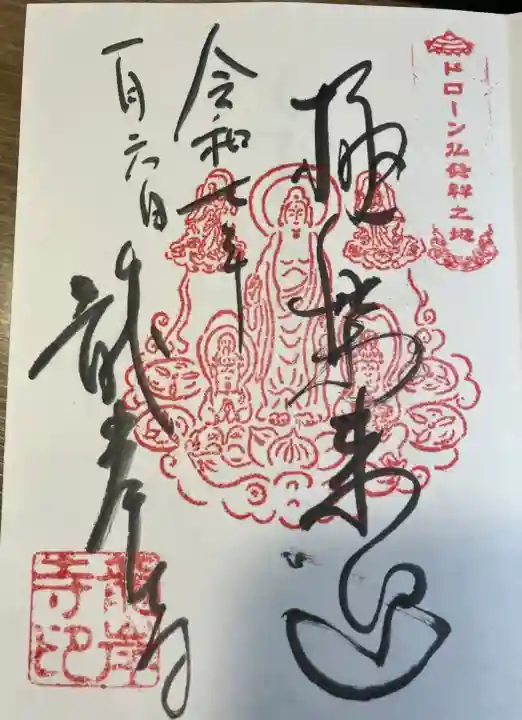 ドローン仏発祥之地
極楽来迎
令和七年
一月六日
龍岸寺
龍岸
寺印